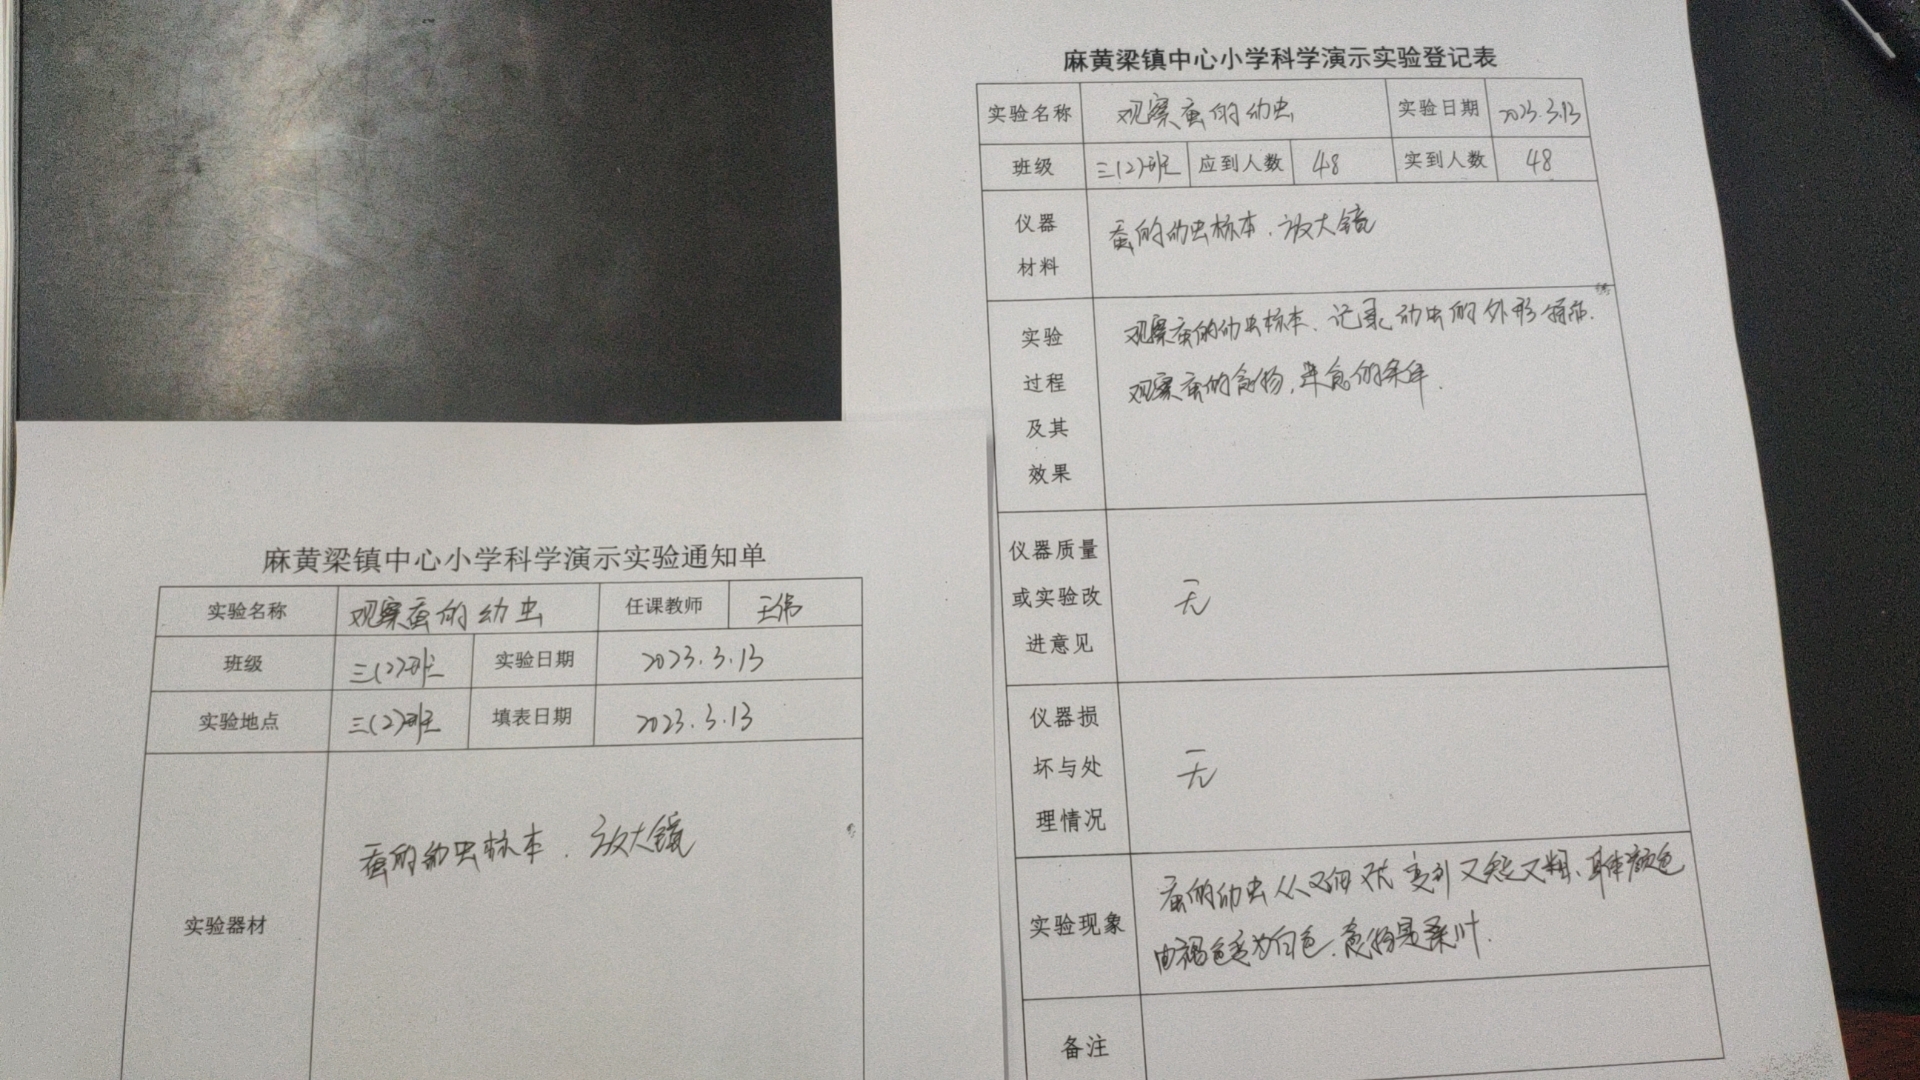 麻黄梁镇中心小学科学演示实验登记表
实验名称 观察蚕的幼虫 实验日期 2023.3.13
班级 三(2)班 应到人数 48 实到人数 48
仪器
材料
蚕的幼虫标本、放大镜
实验
过程
及其
效果
观察蚕的幼虫标本、记录幼虫的外形特征.
观察蚕的食物,进食的条件.
仪器质量
或实验改
进意见
无
仪器损
坏与处
理情况
无
实验现象
蚕的幼虫从又细又长变到又短又粗、身体颜色
由褐色变为白色.食物是桑叶.
备注
麻黄梁镇中心小学科学演示实验通知单
实验名称 观察蚕的幼虫 任课教师 王伟
班级 三(2)班 实验日期 2023.3.13
实验地点 三(2)班 填表日期 2023.3.13
实验器材 蚕的幼虫标本、放大镜